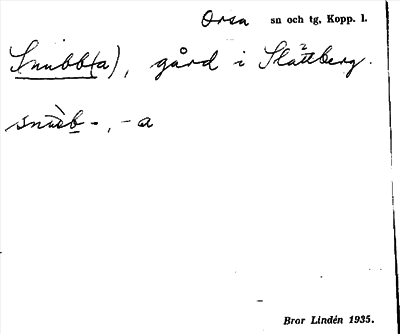 Orsa sn och tg, Kopp. l.
Snubb(a), gård i Slättberg.
-, -a
Bror Lindén 1935.